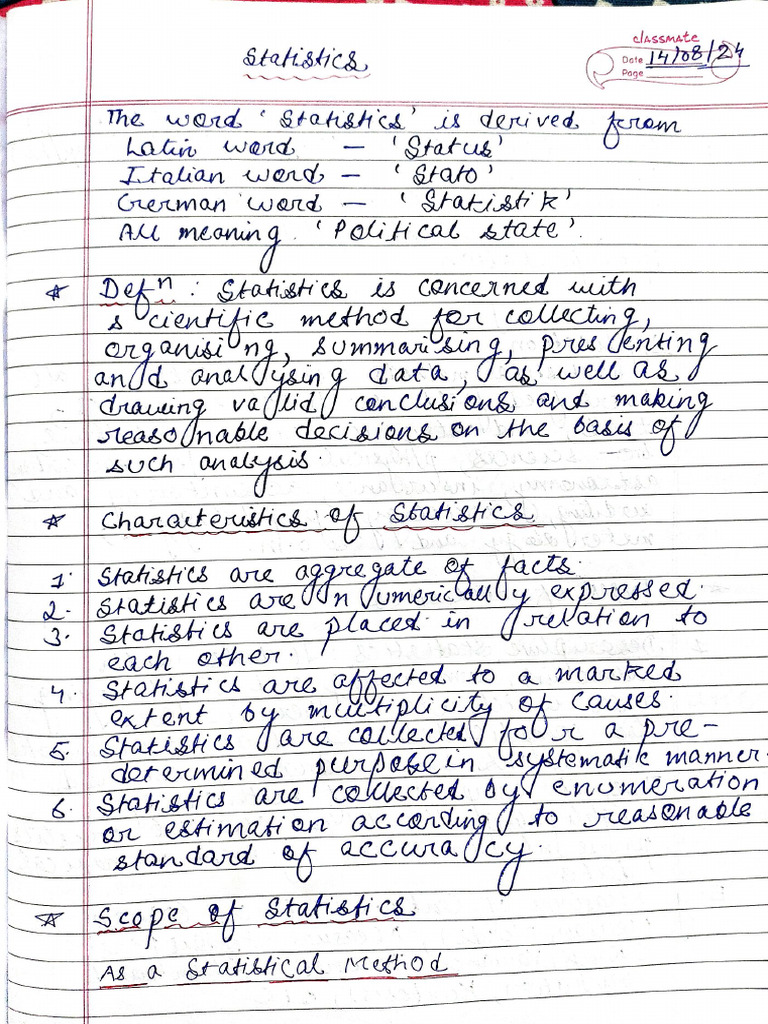 Statistics
classmate
Date 14/08/24
Page
The word 'Statistics' is derived from
Latin word — 'Status'
Italian word — 'Stato'
German word — 'Statistik'
All meaning 'Political state'.
* Defn : Statistics is concerned with
scientific method for collecting,
organising, summarising, presenting
and analysing data, as well as
drawing valid conclusions and making
reasonable decisions on the basis of
such analysis.
* Characteristics of Statistics
1. Statistics are aggregate of facts.
2. Statistics are numerically expressed.
3. Statistics are placed in relation to
each other.
4. Statistics are affected to a marked
extent by multiplicity of causes.
5. Statistics are collected for a pre-
determined purpose in systematic manner.
6. Statistics are collected by enumeration
or estimation according to reasonable
standard of accuracy.
* Scope of Statistics
As a Statistical Method